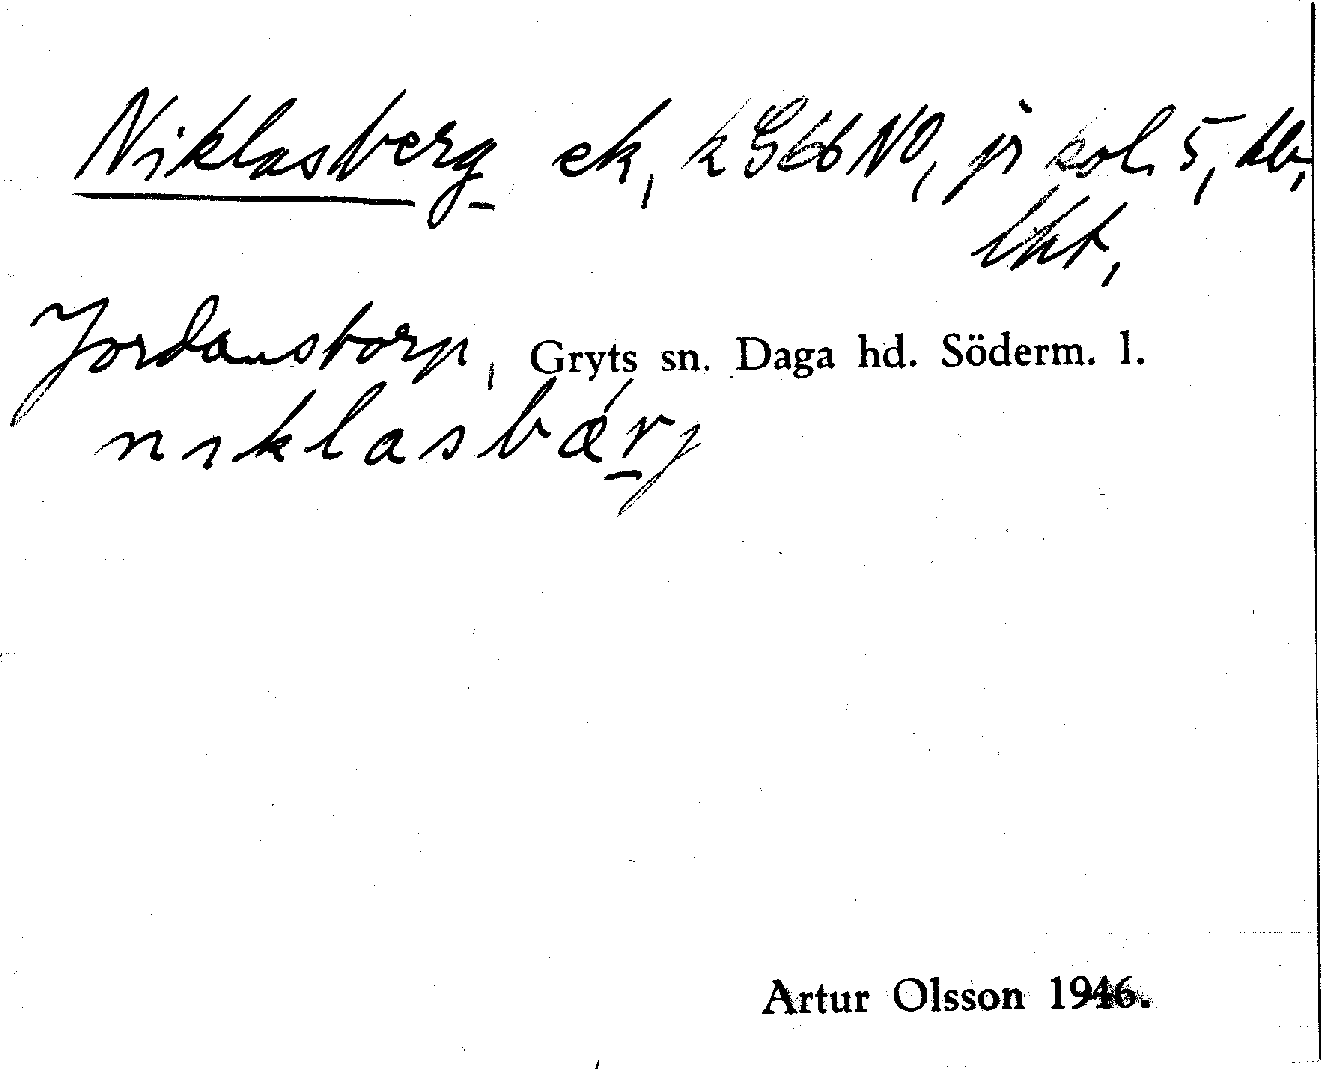 Niklasberg ek, k G66 NO, jr kol. 5, db,
lht,
Jordanstorp, Gryts sn. Daga hd. Söderm. l.
niklasbærj
Artur Olsson 1946.